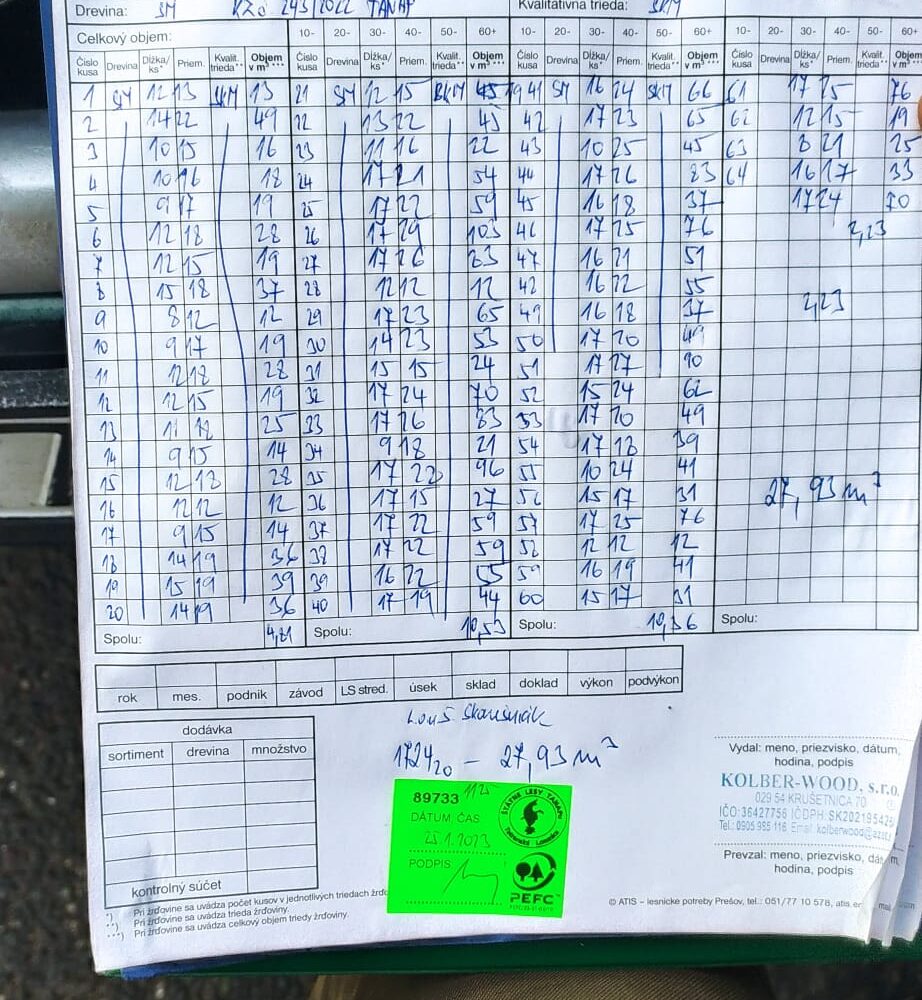 Drevina: SM KZO 243/2022 TANAP Kvalitatívna trieda: SKM
Celkový objem: 10- 20- 30- 40- 50- 60+ 10- 20- 30- 40- 50- 60+ 10- 20- 30- 40- 50- 60+
Číslo kusa Drevina Dĺžka/ks* Priem. Kvalit. trieda** Objem v m³*** Číslo kusa Drevina Dĺžka/ks* Priem. Kvalit. trieda** Objem v m³*** Číslo kusa Drevina Dĺžka/ks* Priem. Kvalit. trieda** Objem v m³*** Číslo kusa Drevina Dĺžka/ks* Priem. Kvalit. trieda** Objem v m³***
1 SM 12 13 SKM 13 21 SM 12 15 SKM 19 41 SM 16 24 SKM 66 61 17 25 76
2 14 22 49 22 13 22 45 42 17 23 65 62 12 15 19
3 10 15 16 23 11 16 22 43 10 25 45 63 8 21 25
4 10 16 18 24 17 21 54 44 17 26 83 64 16 17 33
5 9 17 19 25 17 22 59 45 16 18 37 17 24 70
6 12 18 28 26 17 29 103 46 17 25 76 2,23
7 12 15 19 27 17 26 83 47 16 21 51
8 15 18 37 28 12 12 12 48 16 22 55 2,23
9 8 12 12 29 17 23 65 49 16 18 37
10 9 17 19 30 14 23 53 50 17 20 49
11 12 18 28 31 15 15 24 51 17 27 90
12 12 15 19 32 17 24 70 52 15 24 62
13 11 18 25 33 17 26 83 53 17 20 49
14 9 15 14 34 9 18 21 54 17 18 39
15 12 18 28 35 17 28 96 55 10 24 41
16 12 12 12 36 17 15 27 56 15 17 31 27,93 m³
17 9 15 14 37 17 22 59 57 17 25 76
18 14 19 36 38 17 22 59 58 12 12 12
19 15 19 39 39 16 22 55 59 16 19 41
20 14 19 36 40 17 19 44 60 15 17 31
Spolu: 4,81 Spolu: 10,53 Spolu: 10,36 Spolu:
rok mes. podnik závod LS stred. úsek sklad doklad výkon podvýkon
dodávka
sortiment drevina množstvo
kontrolný súčet
172420 - 27,93 m³
89733 1125
DÁTUM ČAS
25.1.2023
PODPIS
ŠTÁTNE LESY TANAPu
Tatranská Lomnica
PEFC
Vydal: meno, priezvisko, dátum,
hodina, podpis
KOLBER-WOOD, s.r.o.
029 54 KRUŠETNICA 70
IČO:36427756 IČDPH: SK202195426
Tel.: 0905 985 116
Prevzal: meno, priezvisko,
hodina, podpis
*) Pri žrďovine sa uvádza počet kusov v jednotlivých triedach
**) Pri žrďovine sa uvádza trieda žrďoviny.
***) Pri žrďovine sa uvádza celkový objem triedy žrďoviny.
© ATIS – lesnícke potreby Prešov, tel.: 051/77 10 578,